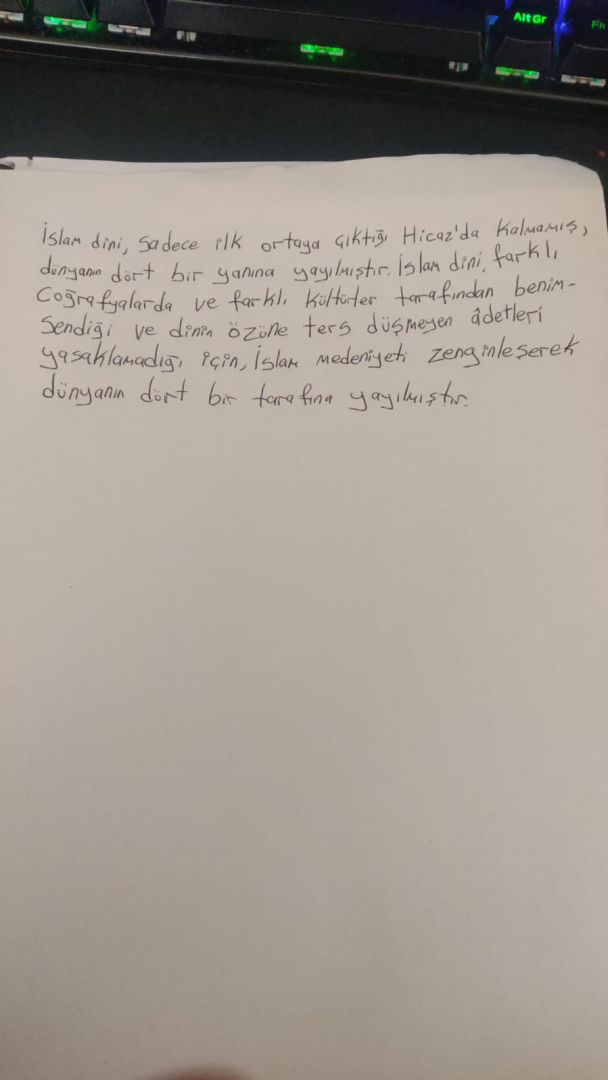 Alt Gr
Fn
İslam dini, sadece ilk ortaya çıktığı Hicaz'da kalmamış,
dünyanın dört bir yanına yayılmıştır. İslam dini, farklı
coğrafyalarda ve farklı kültürler tarafından benim-
sendiği ve dinin özüne ters düşmeyen âdetleri
yasaklamadığı için, İslam medeniyeti zenginleşerek
dünyanın dört bir tarafına yayılmıştır.